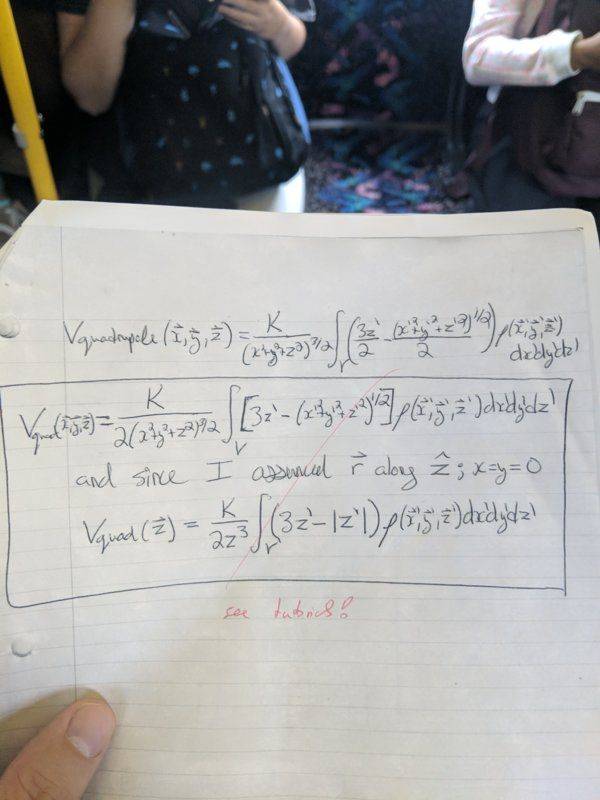 Vquadrupole (x⃗, y⃗, z⃗) = K/(x²+y²+z²)^3/2 ∫_V (3z'/2 - (x'²+y'²+z'²)^1/2/2) ρ(x⃗', y⃗', z⃗') dx'dy'dz'
Vquad(x⃗, y⃗, z⃗) = K/2(x²+y²+z²)^3/2 ∫_V [3z' - (x'²+y'²+z'²)^1/2] ρ(x⃗', y⃗', z⃗') dx'dy'dz'
and since I assumed r⃗ along ẑ; x=y=0
Vquad(z⃗) = K/2z³ ∫_V (3z' - |z'|) ρ(x⃗', y⃗', z⃗') dx'dy'dz'
see tutorial!